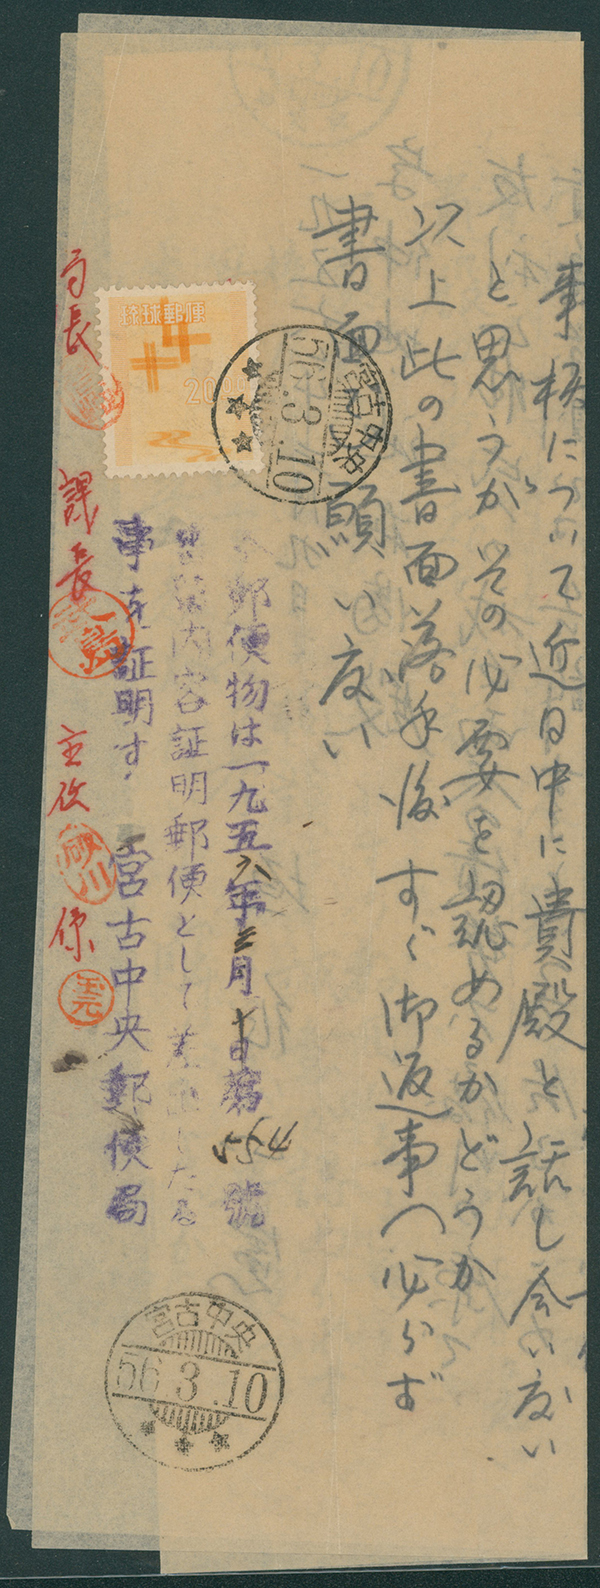 事柄について近日中に貴殿と話し合い度い
と思うがその必要を認めるかどうか
以上此の書面落手後すぐ御返事(必らず
書面 願い度い
琉球郵便
宮古中央
56.3.10
郵便物は一九五六年三月十日第554號
書留内容証明郵便として差出したる
事を証明す
宮古中央郵便局
局長
課長
主改
係
宮古中央
56.3.10